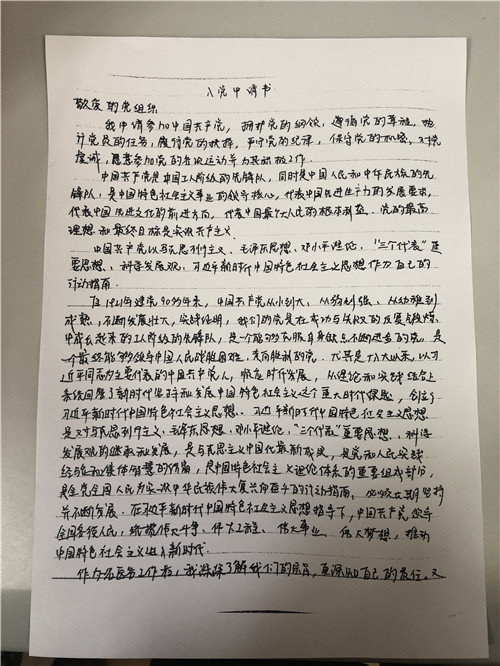 入党申请书
敬爱的党组织
我申请参加中国共产党，拥护党的纲领，遵循党的章程，履
行党员的任务，履行党的抉择，严守党的纪律，保守党的机密，对党
虔诚，愿意参加党的各次运动并为其积极工作。
中国共产党是中国工人阶级的先锋队，同时是中国人民和中华民族的先
锋队，是中国特色社会主义事业的领导核心，代表中国先进生产力的发展要求，
代表中国先进文化的前进方向，代表中国最广大人民的根本利益。党的最高
理想和最终目标是实现共产主义。
中国共产党以马克思列宁主义、毛泽东思想、邓小平理论、“三个代表”重
要思想、科学发展观、习近平新时代中国特色社会主义思想作为自己的
行动指南。
自1921年建党90多年来，中国共产党从小到大、从弱到强、从幼稚到
成熟，不断发展壮大，实践证明，我们的党是在成功与失败的反复锻炼
中成长起来的工人阶级的先锋队，是一个能够克服自身缺点不断进去的党，是
一个最终能够领导中国人民战胜困难、走向胜利的党。尤其是十八大以来，以习
近平同志为主要代表的中国共产党人，顺应时代发展，从理论和实践结合上
系统回答了新时代坚持和发展中国特色社会主义这个重大时代课题，创立了
习近平新时代中国特色社会主义思想。习近平新时代中国特色社会主义思想
是对马克思列宁主义、毛泽东思想、邓小平理论、“三个代表”重要思想、科学
发展观的继承和发展，是马克思主义中国化最新成果，是党和人民实践
经验和集体智慧的结晶，是中国特色社会主义理论体系的重要组成部分，
是全党全国人民为实现中华民族伟大复兴而奋斗的行动指南，必须长期坚持
并不断发展。在习近平新时代中国特色社会主义思想指导下，中国共产党领导
全国各族人民，统揽伟大斗争、伟大工程、伟大事业、伟大梦想，推动
中国特色社会主义进入新时代。
作为名医务工作者，我深深了解我们的启，更深知自己的责任，又